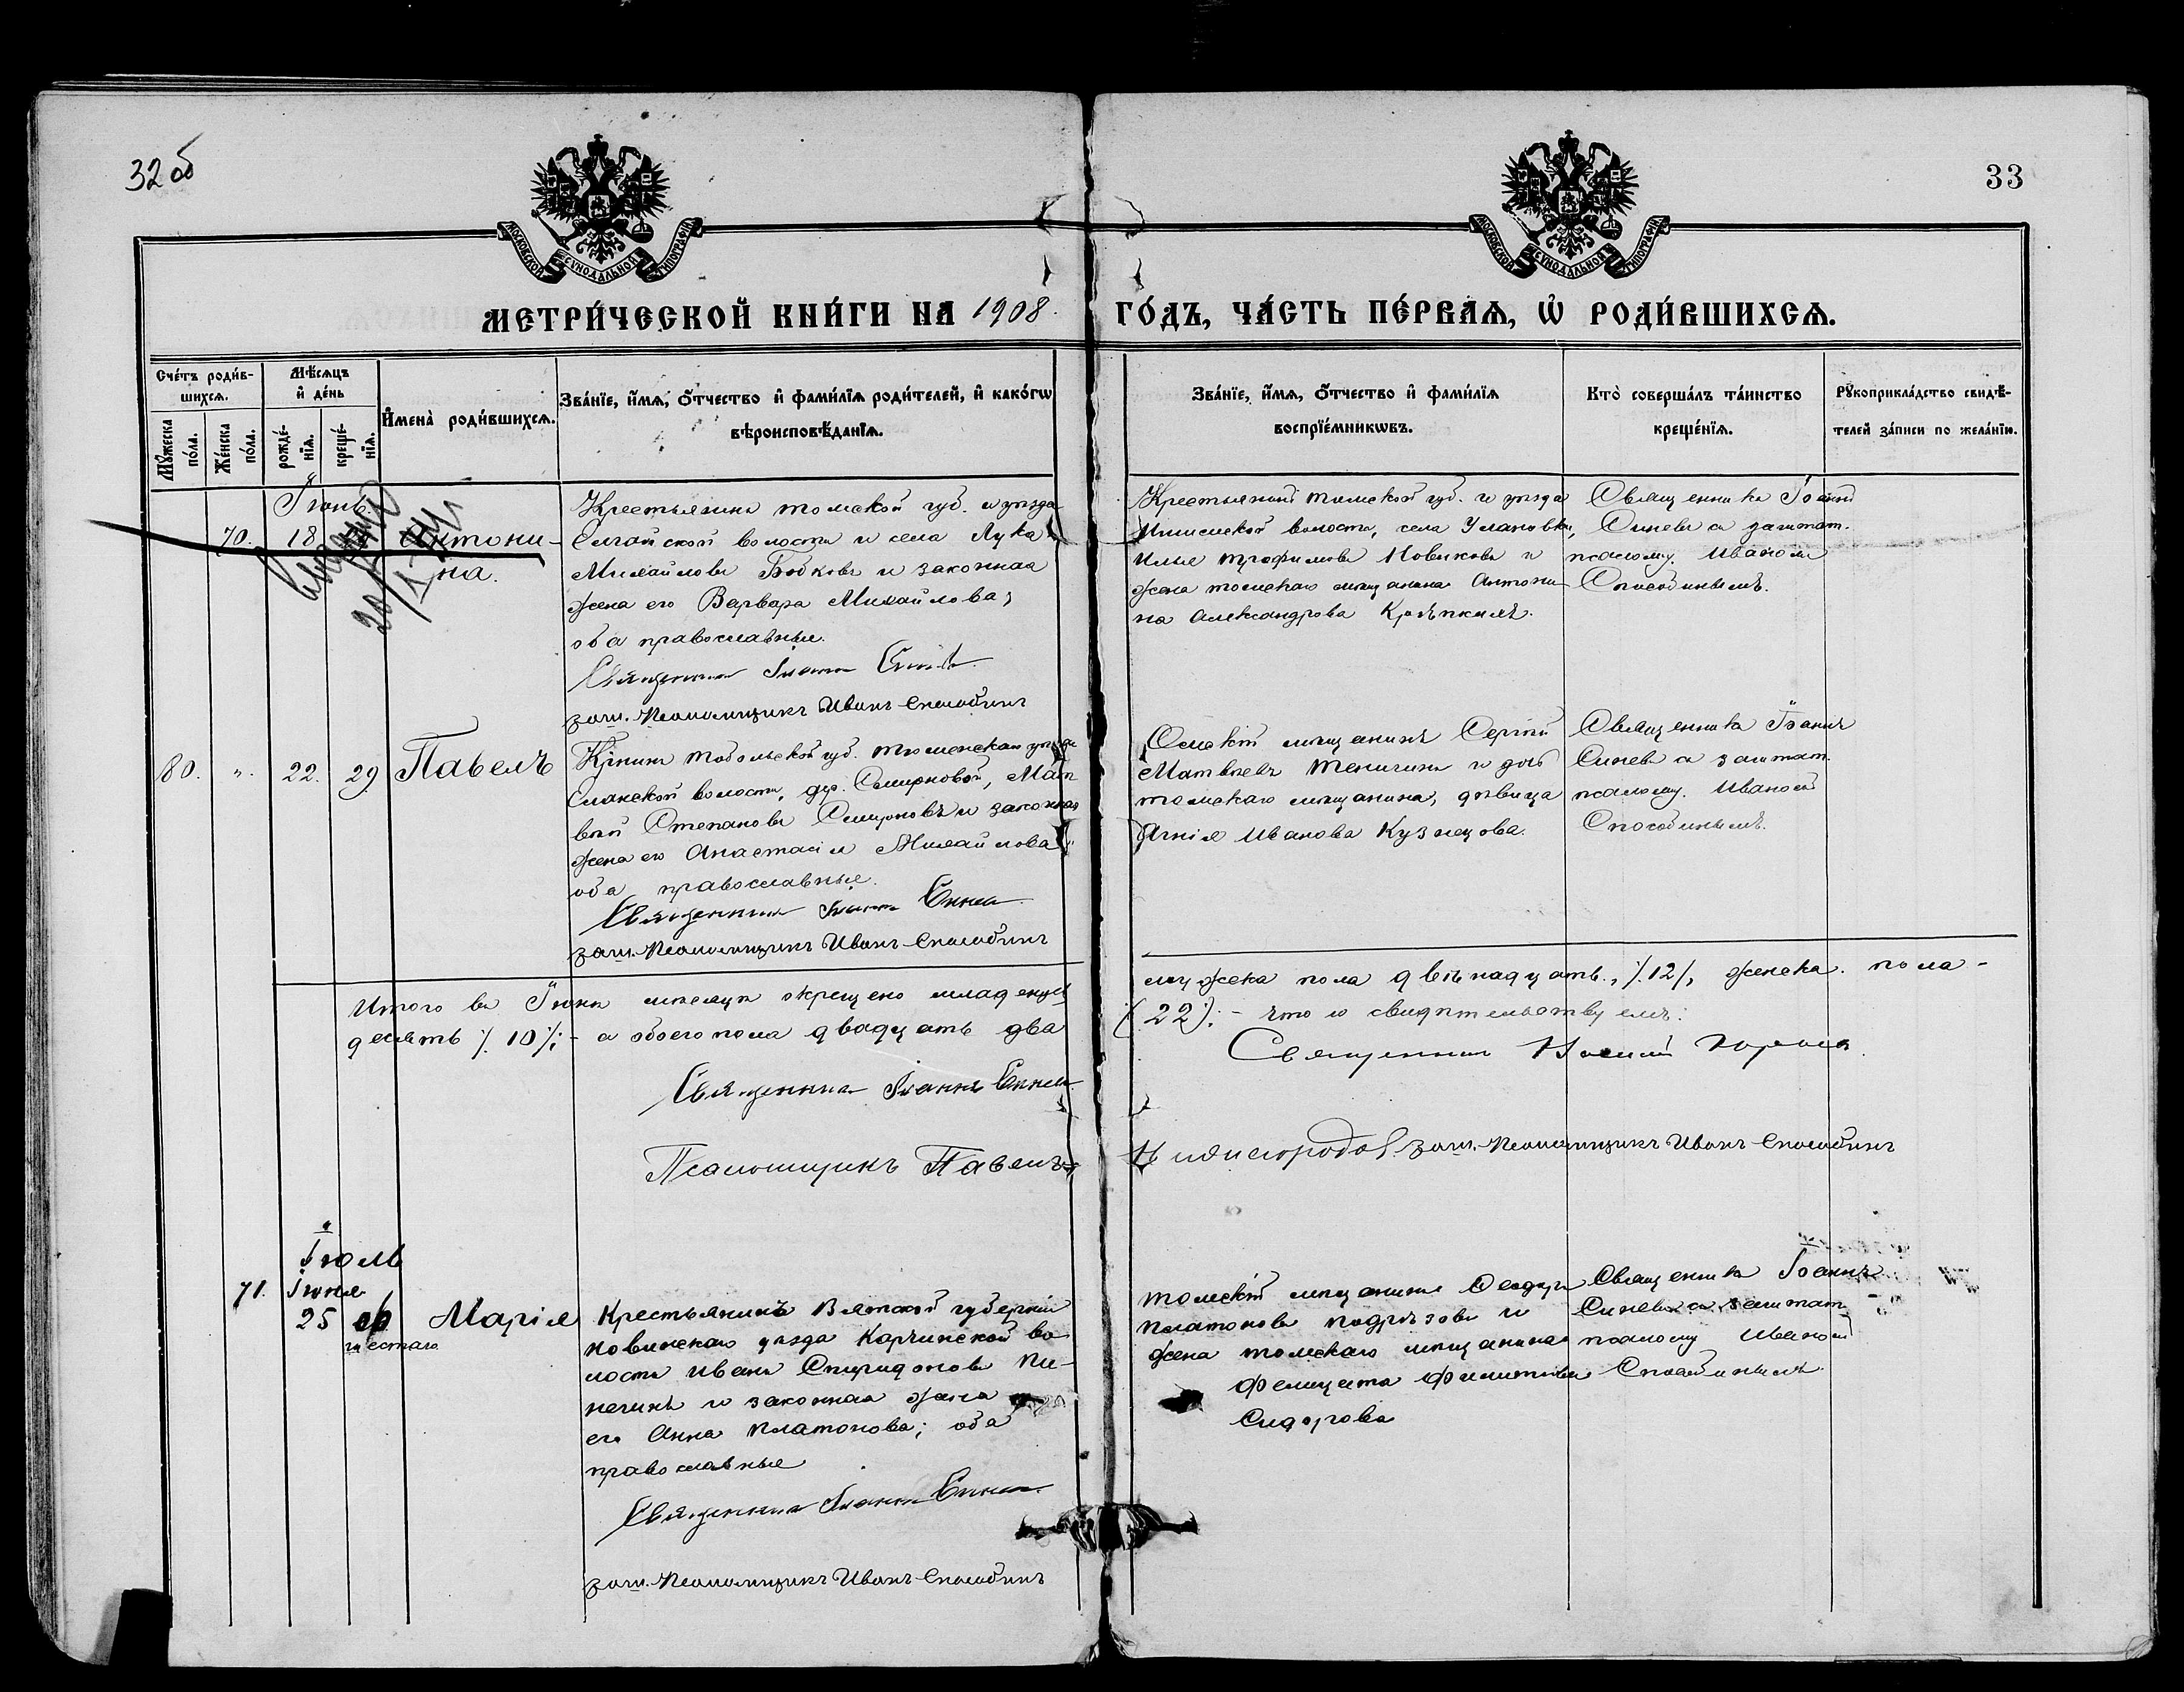 32 об
33
МОСКОВСКОЙ СѴНОДАЛЬНОЙ ТИПОГРАФІИ
МОСКОВСКОЙ СѴНОДАЛЬНОЙ ТИПОГРАФІИ
МЕТРИ́ЧЕСКОЙ КНИ́ГИ НА 1908.
ГО́ДЪ, ЧА́СТЬ ПЕ́РВАѦ, Ѡ҆ РОДИ́ВШИХСѦ.
Сче́тъ роди́в-
шихсѧ.
Мꙋ́жеска по́ла.
Же́нска по́ла.
Мѣ́сѧцъ
и҆ де́нь
рожде́-
нїѧ.
креще́-
нїѧ.
И҆мена̀ роди́вшихсѧ.
Зва́нїе, и҆́мѧ, ѻ҆́тчество и҆ фами́лїѧ роди́телей, и҆ како́гѡ
вѣроисповѣ́данїѧ.
Зва́нїе, и҆́мѧ, ѻ҆́тчество и҆ фами́лїѧ
воспрїе́мникѡвъ.
Кто̀ соверша́лъ та́инство
креще́нїѧ.
Рꙋкоприкла́дство свидѣ́-
телей за́писи по жела́нїю.
Іюнь
70. 18
Антони-
на.
Крестьянинъ Томской губ. и уѣзда
волости и села Лука
Михайловъ Бобковъ и законная
жена его Варвара Михайлова;
оба православные.
Священникъ Іоаннъ Синевъ
зашт. Псаломщикъ Иванъ Способинъ
Крестьянинъ Томской губ. и уѣзда
волости, села Улановки,
Илья Трофимовъ Новиковъ и
жена томскаго мѣщанина Антони
на Александрова
Священникъ Іоаннъ
Синевъ съ заштат.
псаломщ. Иваномъ
Способинымъ.
80. „. 22. 29 Павелъ
Кр-нинъ Тобольской губ. Тюменскаго уѣзда
волости, дер. Смирновой, Мат
вѣй Степановъ Смирновъ и законная
жена его Анастасія Михайлова;
оба православные.
Священникъ Іоаннъ Синевъ
зашт. Псаломщикъ Иванъ Способинъ
Омскій мѣщанинъ Сергій
Матвѣевъ и дочь
томскаго мѣщанина, дѣвица
Агнія Иванова Кузнецова.
Священникъ Іоаннъ
Синевъ съ заштат.
псаломщ. Иваномъ
Способинымъ.
Итого въ Іюнѣ мѣсяцѣ окрещено младенцевъ
мужска пола двѣнадцать, /.12/., женска пола -
десять /. 10 /.; - а обоего пола двадцать два
(22). - что и свидѣтельствуемъ:
Священникъ Іоаннъ Синевъ
Священникъ
Псаломщикъ Павелъ
Нижегородовъ. зашт. Псаломщикъ Иванъ Способинъ
Іюль
71. Іюня
25
шестаго
Марія
Крестьянинъ Вятской губерніи
уѣзда Карчинской во
лости Иванъ Спиридоновъ Пи-
и законная жена
его Анна Платонова; оба
православные
Священникъ Іоаннъ Синевъ
зашт. Псаломщикъ Иванъ Способинъ
Томскій мѣщанинъ Ѳеодоръ
Платоновъ Подрѣзовъ и
жена томскаго мѣщанина
Фелицата
Сидорова
Священникъ Іоаннъ
Синевъ съ заштат.
псаломщ. Иваномъ
Способинымъ